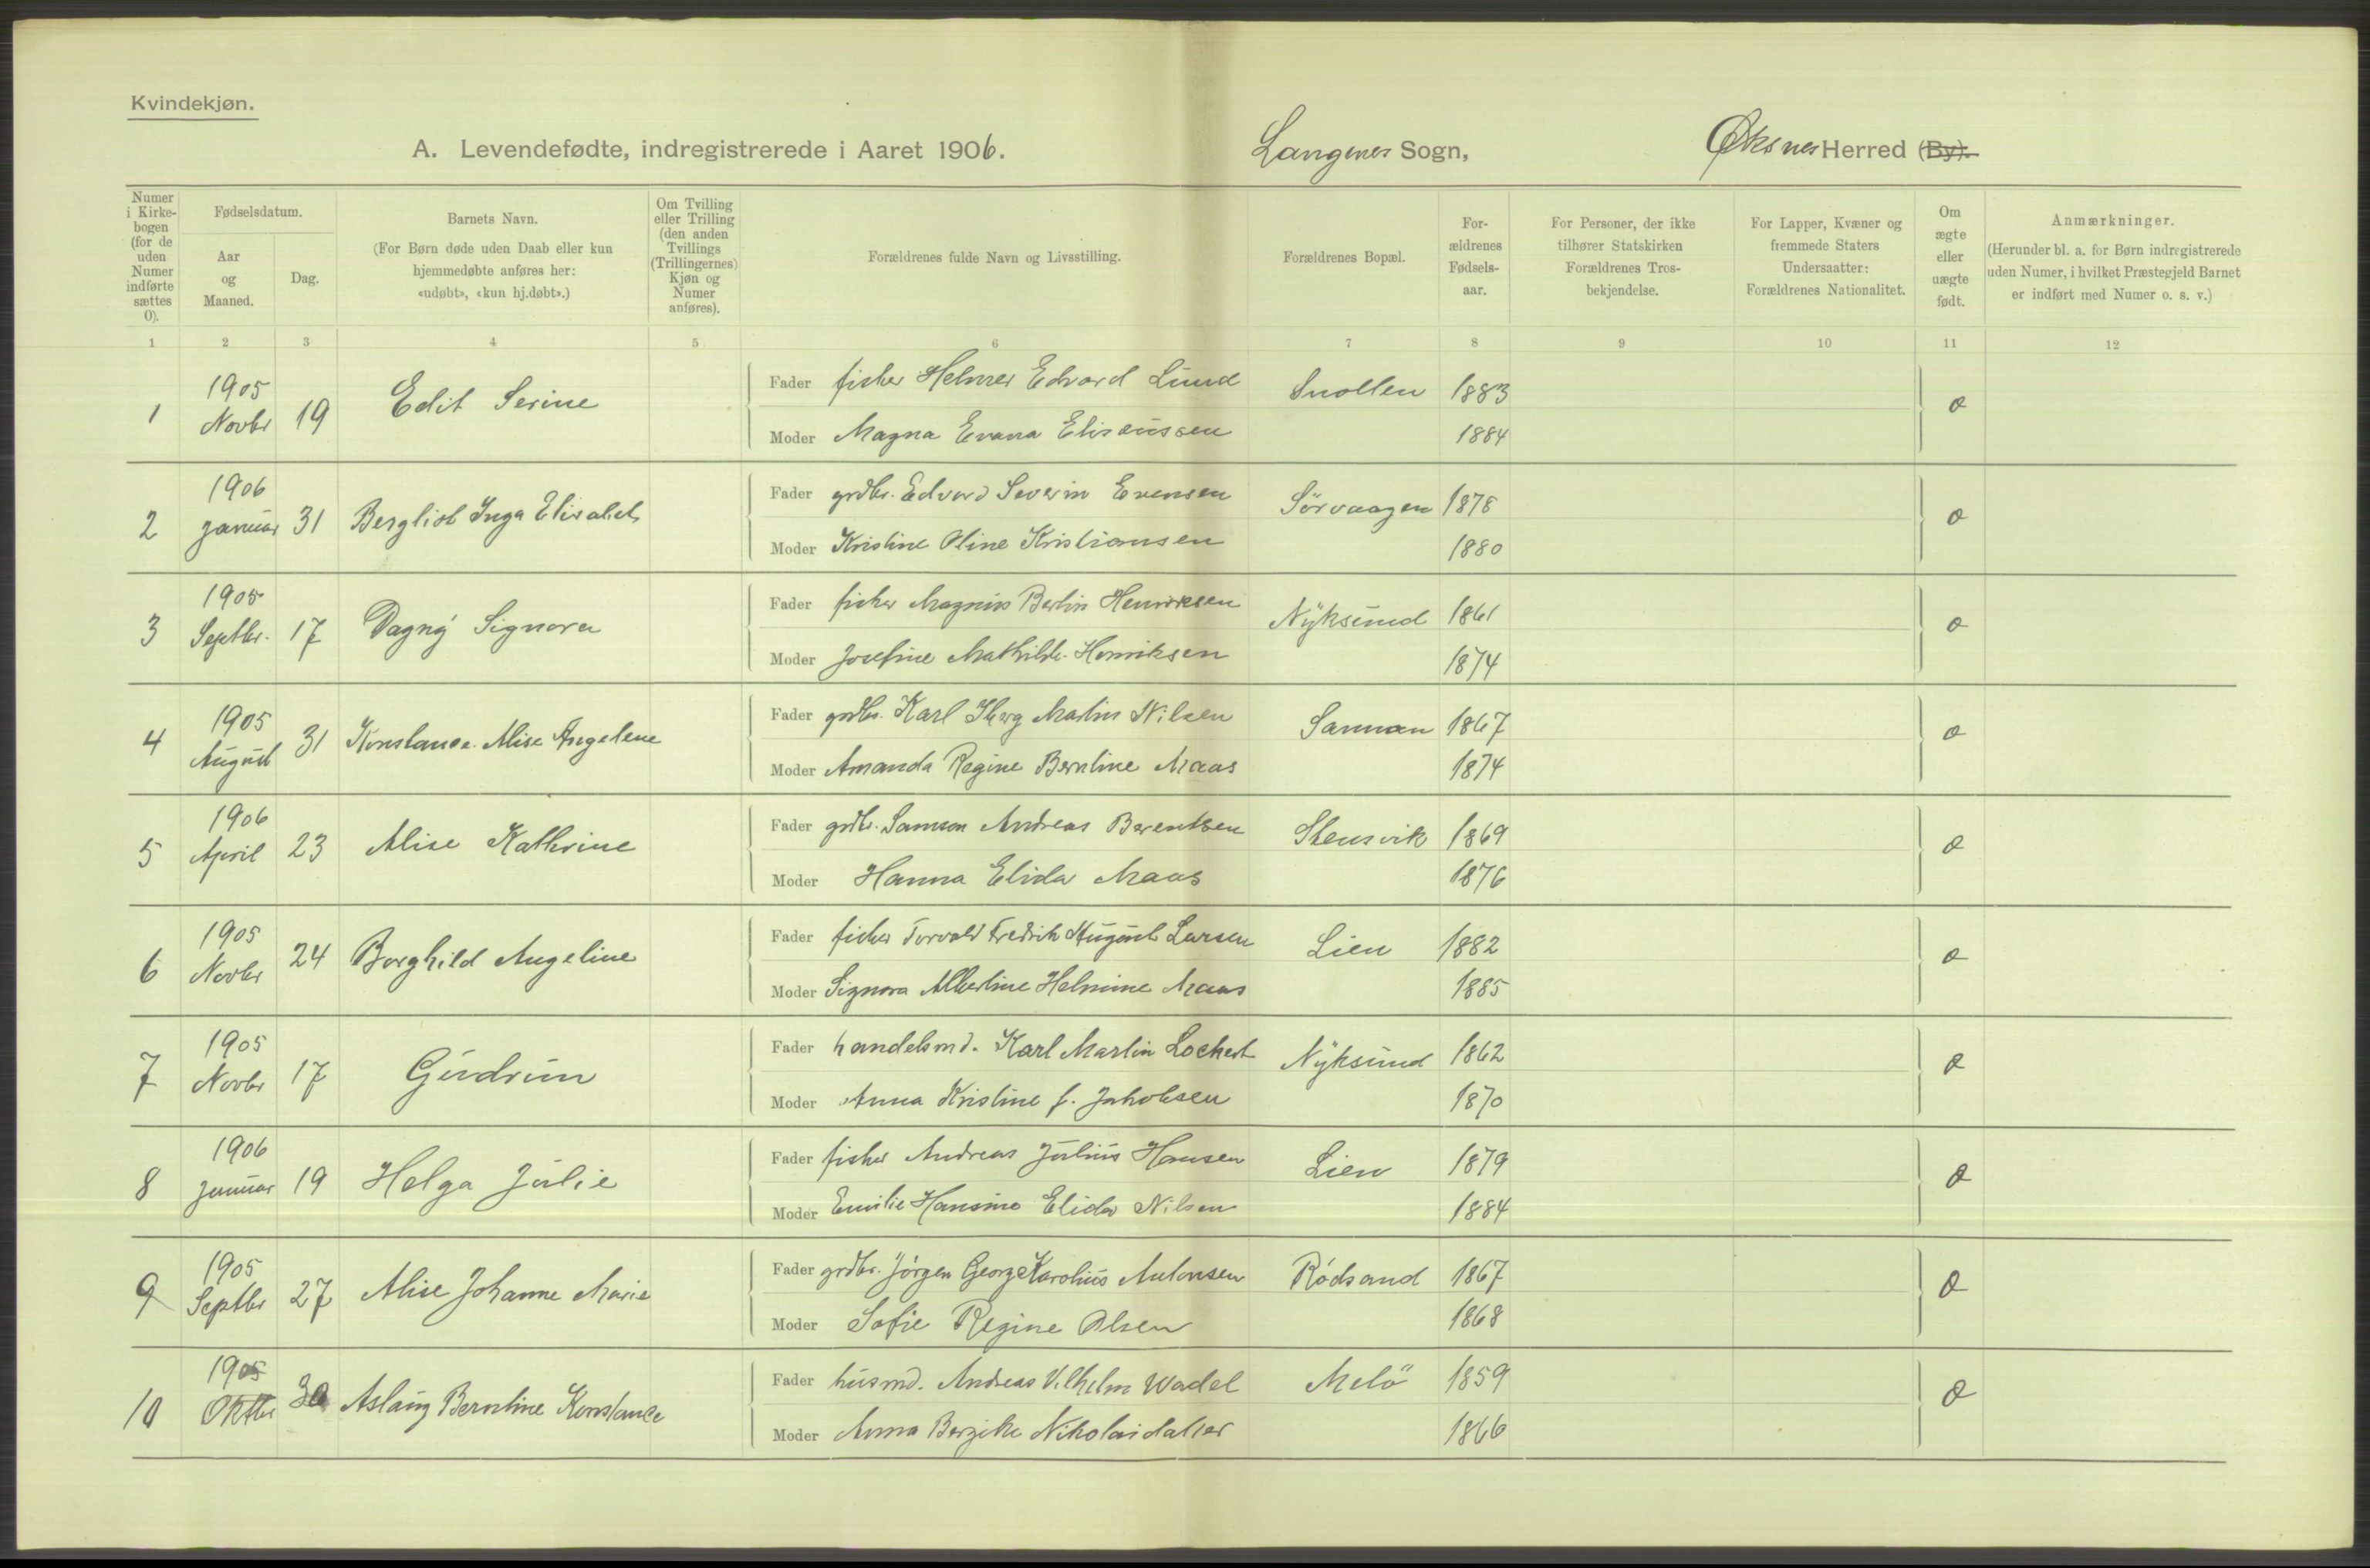 Kvindekjøn.
A. Levendefødte, indregistrerede i Aaret 1906.
Langenes Sogn,
Øksnes Herred (By).
Numer i Kirkebogen (for de uden Numer indførte sættes 0).
Fødselsdatum.
Aar og Maaned.
Dag.
Barnets Navn.
(For Børn døde uden Daab eller kun hjemmedøbte anføres her: «udøbt», «kun hj.døbt».)
Om Tvilling eller Trilling (den anden Tvillings (Trillingernes) Kjøn og Numer anføres).
Forældrenes fulde Navn og Livsstilling.
Forældrenes Bopæl.
Forældrenes Fødselsaar.
For Personer, der ikke tilhører Statskirken Forældrenes Trosbekjendelse.
For Lapper, Kvæner og fremmede Staters Undersaatter: Forældrenes Nationalitet.
Om ægte eller uægte født.
Anmærkninger.
(Herunder bl. a. for Børn indregistrerede uden Numer, i hvilket Præstegjeld Barnet er indført med Numer o. s. v.)
1 2 3 4 5 6 7 8 9 10 11 12
1 1905 Novbr 19 Edit Serine
Fader fisker Helmer Edvard Lund Snollen 1883
Moder Magna Evana Elisæussen 1884
2 1906 Januar 31 Bergliot Inga Elisabet
Fader grdbr. Edvard Severin Evensen Sörvaagen 1878
Moder Kristine Oline Kristiansen 1880
3 1905 Septbr. 17 Dagny Signora
Fader fisker Magnus Berlin Henriksen Nyksund 1861
Moder Josefine Mathilde Henriksen 1874
4 1905 August 31 Konstance Alise Angelene
Fader grdbr. Karl Martin Nilsen Sannan 1867
Moder Amanda Regine Berntine Maas 1874
5 1906 April 23 Alise Kathrine
Fader grdbr. Samson Andreas Berentsen Stensvik 1869
Moder Hanna Elida Maas 1876
6 1905 Novbr 24 Borghild Angeline
Fader fisker Torvald Fredrik August Larsen Lien 1882
Moder Signora Albertine Helmine Maas 1885
7 1905 Novbr 17 Gudrun
Fader handelsmd. Karl Martin Lockert Nyksund 1862
Moder Anna Kristine f. Jakobsen 1870
8 1906 Januar 19 Helga Julie
Fader fisker Andreas Julius Hansen Lien 1879
Moder Emilie Hansine Elida Nilsen 1884
9 1905 Septbr 27 Alise Johanne Marie
Fader grdbr. Jörgen Georg Karolius Antonsen Rödsand 1867
Moder Sofie Regine Olsen 1868
10 1905 Oktbr 30 Aslaug Berntine Konstance
Fader husmd. Andreas Vilhelm Wadel Melö 1859
Moder Anna Bergitte Nikolaidatter 1866